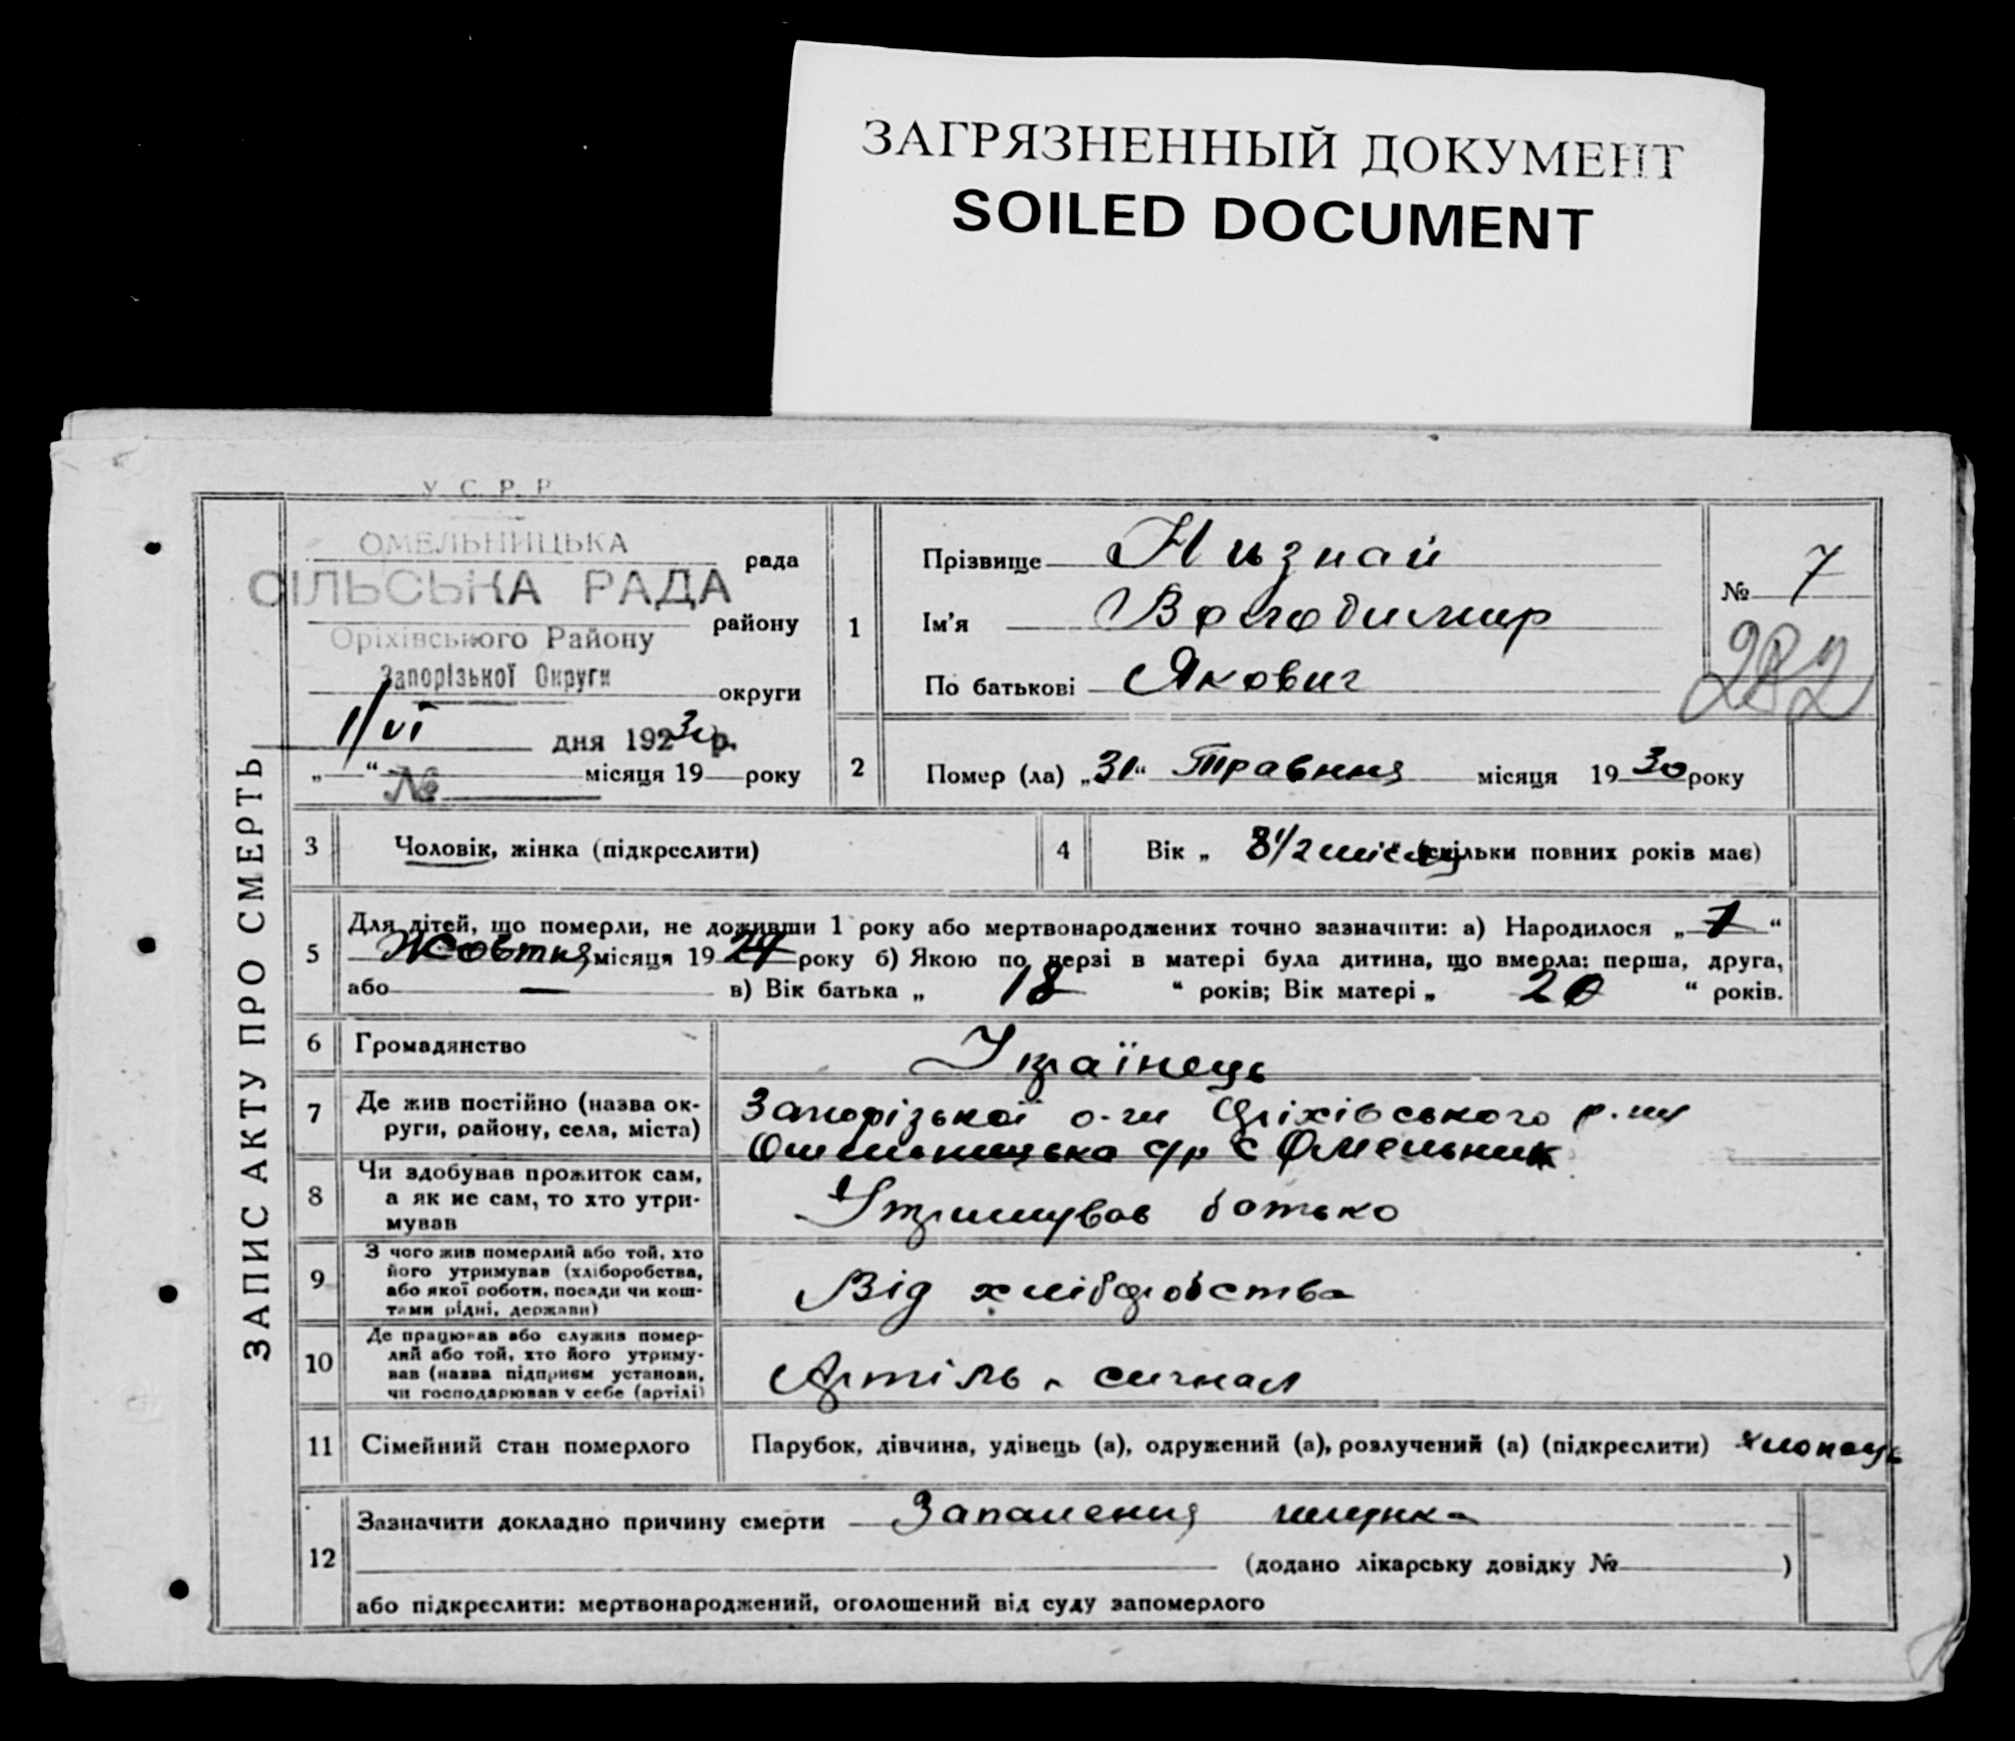 ЗАГРЯЗНЕННЫЙ ДОКУМЕНТ
SOILED DOCUMENT
У. С. Р. Р.
ЗАПИС АКТУ ПРО СМЕРТЬ
ОМЕЛЬНИЦЬКА
рада
СІЛЬСЬКА РАДА
району
Оріхівського Району
Запорізької Округи
округи
1/VI дня 192 30 р.
„ “ місяця 19 року
№
1
Прізвище Низнай
Ім’я Володимир
По батькові Якович
№ 7
282
2 Помер (ла) „31“ Травня місяця 19 30 року
3 Чоловік, жінка (підкреслити)
4 Вік „ 8 1/2 місяц (скільки повних років має)
5 Для дітей, що померли, не доживши 1 року або мертвонароджених точно зазначити: а) Народилося „ “
Жовтня місяця 19 29 року б) Якою по черзі в матері була дитина, що вмерла: перша, друга,
або — в) Вік батька „ 18 “ років; Вік матері „ 20 “ років.
6 Громадянство Українець
7 Де жив постійно (назва ок-
руги, району, села, міста)
Запорізької о-ги Оріхівського р-ну
Омельницька с/р с Омельник
8 Чи здобував прожиток сам,
а як не сам, то хто утри-
мував
Утримував батько
9 З чого жив померлий або той, хто
його утримував (хліборобства,
або якої роботи, посади чи кош-
тами рідні, держави)
Від хліборобства
10 Де працював або служив помер-
лий або той, хто його утриму-
вав (назва підприєм установи,
чи господарював у себе (артілі)
Артіль „ сигнал
11 Сімейний стан померлого Парубок, дівчина, удівець (а), одружений (а), розлучений (а) (підкреслити) хлопець
12 Зазначити докладно причину смерти Запалення
(додано лікарську довідку № )
або підкреслити: мертвонароджений, оголошений від суду запомерлого